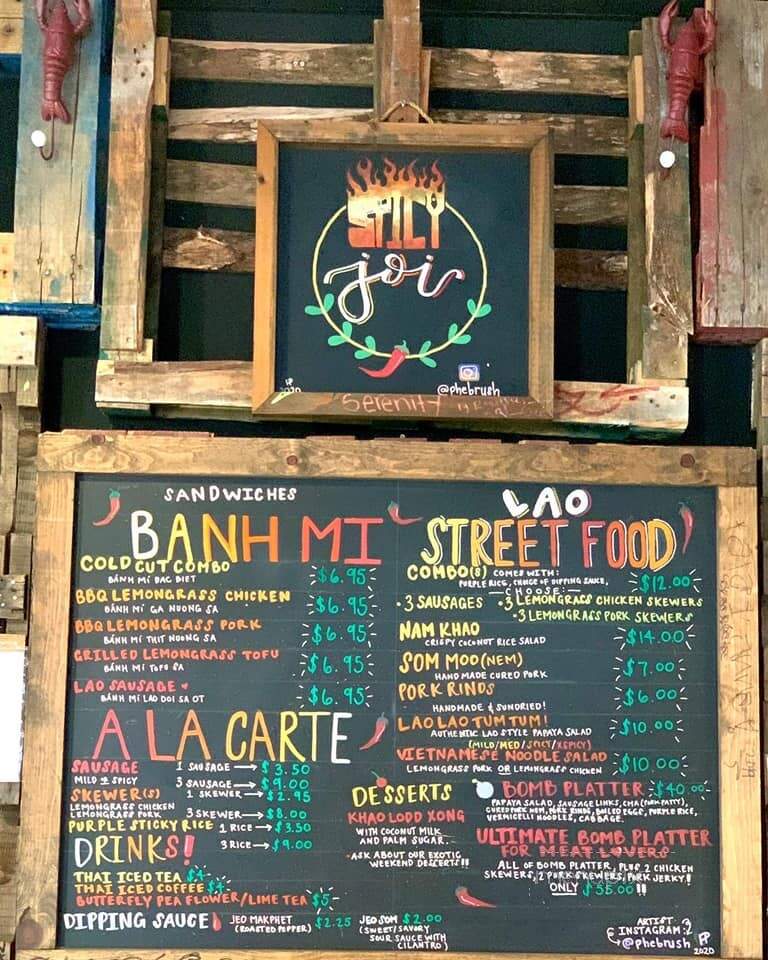 SPICY
joi
@phebrush
2020
Serenity
SANDWICHES
BANH MI
COLD CUT COMBO $6.95
BÁNH MÌ DAC BIET
BBQ LEMONGRASS CHICKEN $6.95
BÁNH MÌ GA NUONG SA
BBQ LEMONGRASS PORK $6.95
BÁNH MÌ THIT NUONG SA
GRILLED LEMONGRASS TOFU $6.95
BÁNH MÌ TOFU SA
LAO SAUSAGE $6.95
BÁNH MÌ LAO DOI SA OT
A LA CARTE
SAUSAGE 1 SAUSAGE → $3.50
MILD OR SPICY 3 SAUSAGE → $9.00
SKEWER(S) 1 SKEWER → $2.95
LEMONGRASS CHICKEN
LEMONGRASS PORK 3 SKEWER → $8.00
PURPLE STICKY RICE 1 RICE → $3.50
3 RICE → $9.00
DRINKS!
THAI ICED TEA $4
THAI ICED COFFEE $4
BUTTERFLY PEA FLOWER/LIME TEA $5
DIPPING SAUCE
JEO MAKPHET $2.25
(ROASTED PEPPER)
JEO SOM $2.00
(SWEET/SAVORY
SOUR SAUCE WITH
CILANTRO)
LAO
STREET FOOD
COMBO(S) COMES WITH: $12.00
PURPLE RICE, CHOICE OF DIPPING SAUCE,
— CHOOSE: —
• 3 SAUSAGES • 3 LEMONGRASS CHICKEN SKEWERS
• 3 LEMONGRASS PORK SKEWERS
NAM KHAO $14.00
CRISPY COCONUT RICE SALAD
SOM MOO (NEM) $7.00
HAND MADE CURED PORK
PORK RINDS $6.00
HANDMADE & SUNDRIED!
LAO LAO TUM TUM! $10.00
AUTHENTIC LAO STYLE PAPAYA SALAD
(MILD/MED/SPICY/XSPICY)
VIETNAMESE NOODLE SALAD $10.00
LEMONGRASS PORK OR LEMONGRASS CHICKEN
DESSERTS
KHAO LODD XONG
WITH COCONUT MILK
AND PALM SUGAR.
• ASK ABOUT OUR EXOTIC
WEEKEND DESSERTS!!
BOMB PLATTER $40.00
PAPAYA SALAD, SAUSAGE LINKS, CHA (PORK PATTY),
CURED PORK NEM, PORK RINDS, BOILED EGGS, PURPLE RICE,
VERMICELLI NOODLES, CABBAGE.
ULTIMATE BOMB PLATTER
FOR MEAT LOVERS
ALL OF BOMB PLATTER, PLUS 2 CHICKEN
SKEWERS, 2 PORK SKEWERS, PORK JERKY!
ONLY $55.00!!
ARTIST
INSTAGRAM:
@phebrush
2020